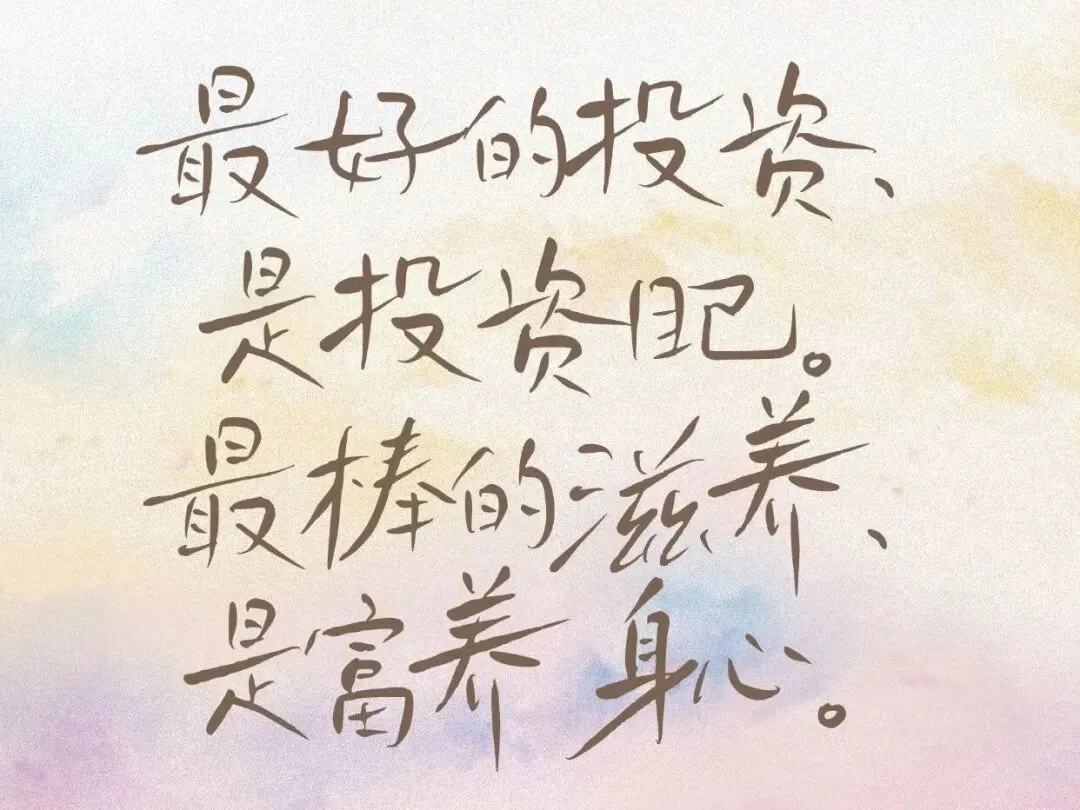 最好的投资、
是投资自己。
最棒的滋养、
是富养身心。